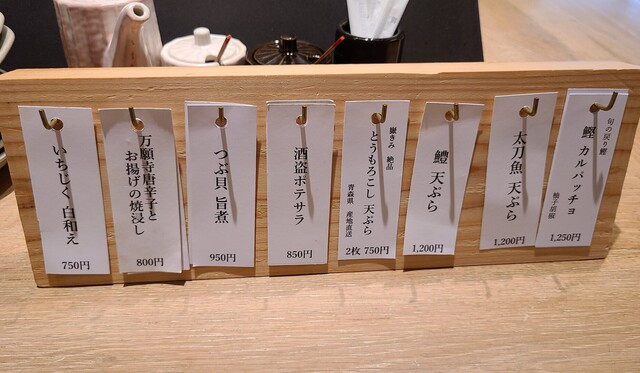 旬の戻り鰹
鰹 カルパッチョ
柚子胡椒
1,250円
太刀魚 天ぷら
1,200円
鱧 天ぷら
1,200円
嶽きみ 絶品
とうもろこし 天ぷら
青森県 産地直送
2枚 750円
酒盗ポテサラ
850円
つぶ貝 旨煮
950円
万願寺唐辛子と
お揚げの焼浸し
800円
いちじく 白和え
750円